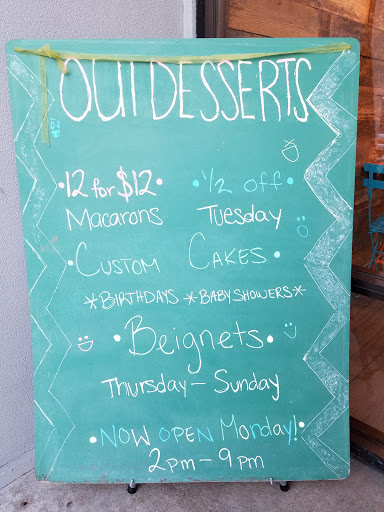 OUI DESSERTS
•12 for $12• •1/2 off•
Macarons Tuesday
•CUSTOM CAKES•
*BIRTHDAYS *BABY SHOWERS*
•Beignets•
Thursday - Sunday
•NOW OPEN Monday!•
2pm - 9pm